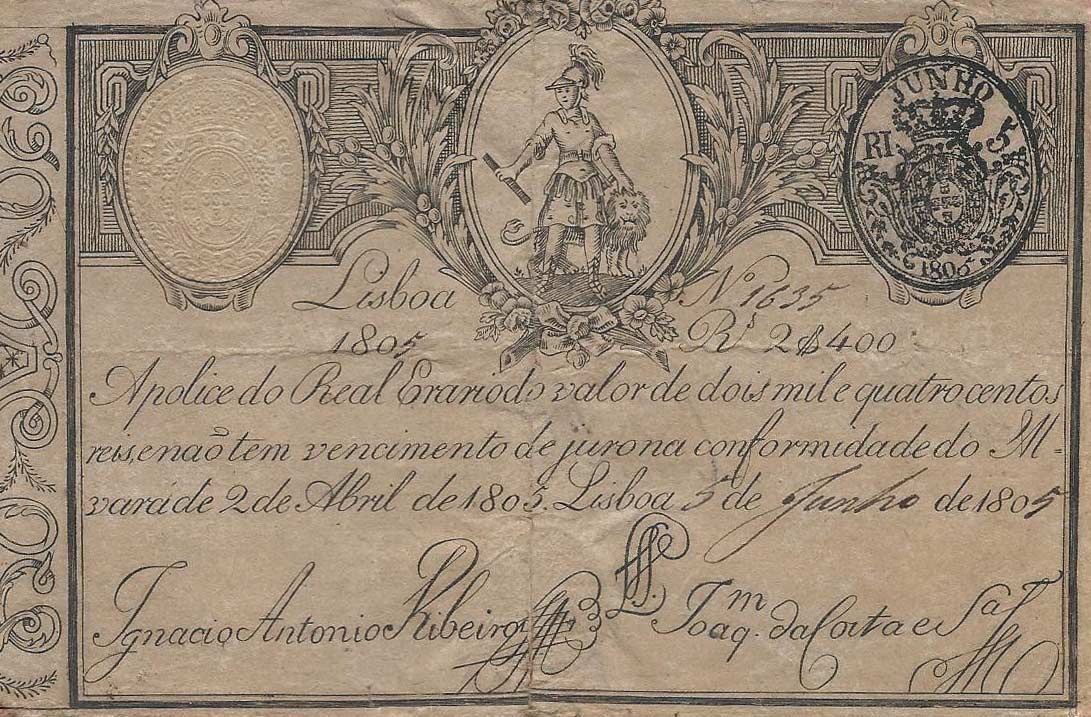 JUNHO
RI. 5
1805
Lisboa Nº 1635
1805 Rˢ 2$400
Apolice do Real Erario do valor de dois mil e quatro centos
reis, e naõ tem vencimento de juro na conformidade do Al-
vará de 2 de Abril de 1805. Lisboa 5 de Junho de 1805
Ignacio Antonio Ribeiro Joaq.ᵐ da Costa e Sᵃ